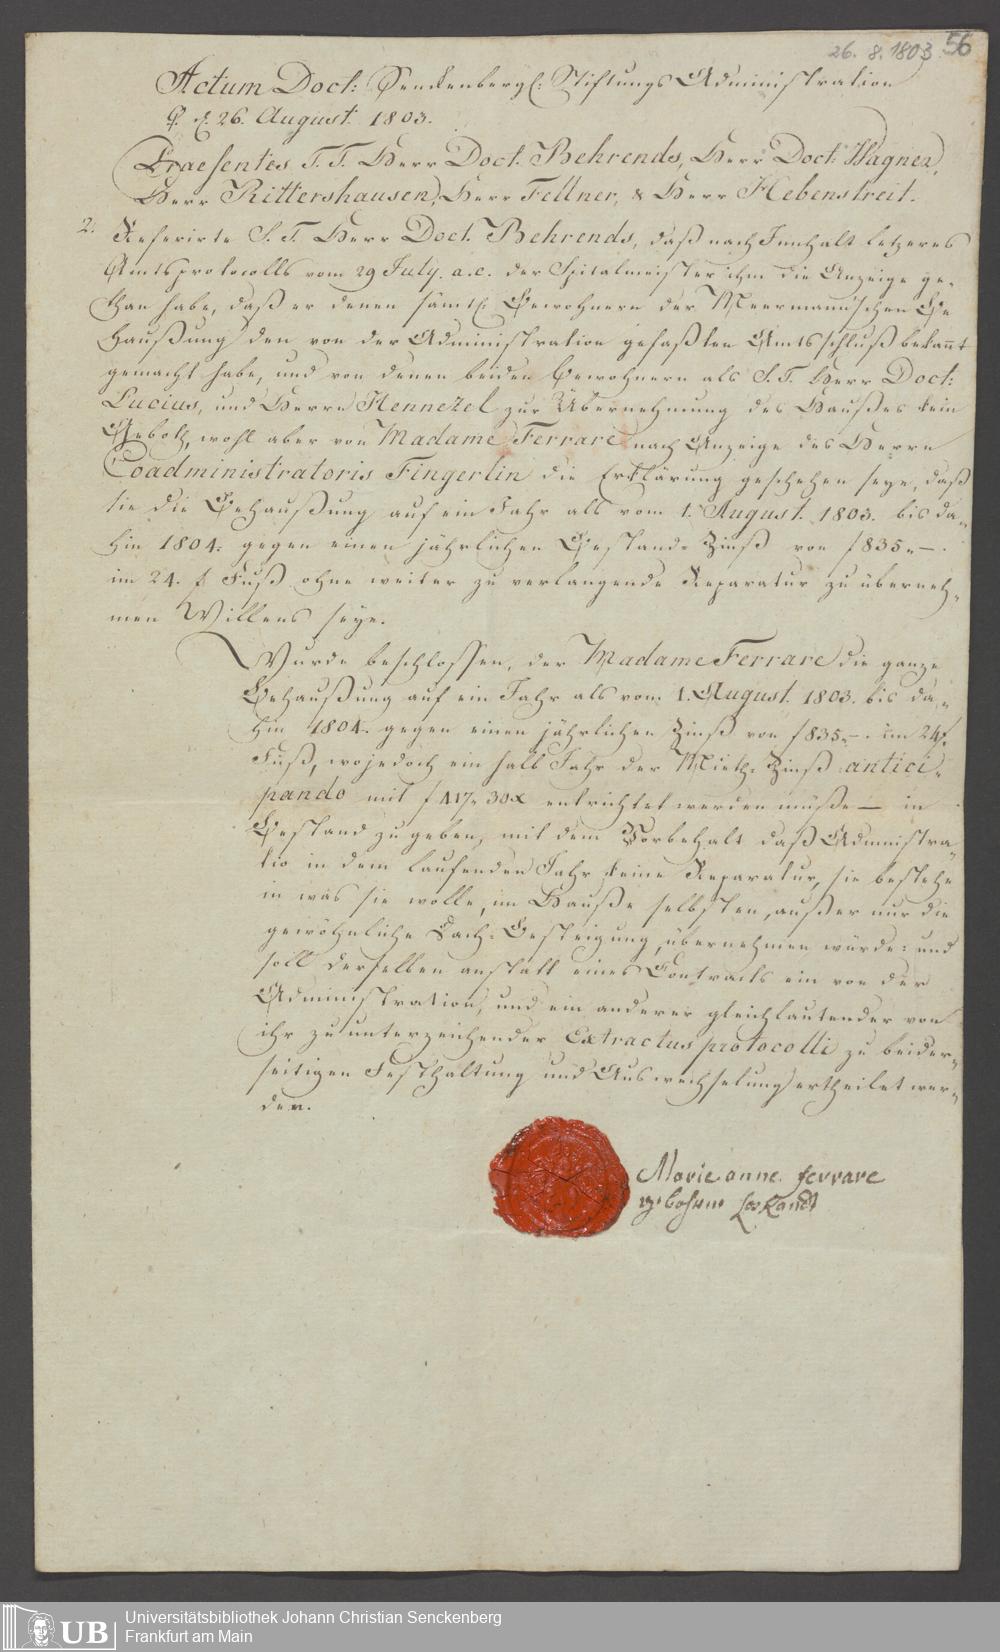 26. 8. 1803. 56
Actum Doct: Senckenbergl: Stiftungs Administration
d. 26. August. 1803.
Praesentes T. T. Herr Doct. Behrends, Herr Doct. Wagner,
Herr Rittershausen, Herr Fellner, & Herr Hebenstreit.
2. Referirte S. T. Herr Doct. Behrends, daß nach Innhalt letzeres
Amtsprotocolls vom 29 July. a. c. der Spitalmeister ihm die Anzeige ge-
than habe, daß er denen sämtl: Bewohnern der Meermann'schen Be
haußung den von der Administration gefaßten Amtsschluß bekannt
gemacht habe, und von denen beiden Bewohnern als S. T. Herr Doct:
Lucius, und Herrn Hennezel zur Übernehmung des Haußes kein
Geboth, wohl aber von Madame Ferrare nach Anzeige des Herrn
Coadministratoris Fingerlin die Erklärung geschehen seye, daß
sie die Behaußung auf ein Jahr als vom 1. August. 1803. bis da-
hin 1804. gegen einen jährlichen Bestand-Zinß von f 835.–.
im 24. f Fuß ohne weiter zu verlangende Reparatur zu überneh-
men Willens seye.
Wurde beschlossen, der Madame Ferrare die ganze
Behaußung auf ein Jahr als vom 1. August. 1803. bis da-
hin 1804. gegen einen jährlichen Zinß von f 835.–. im 24f.
Fuß, wo jedoch ein halb Jahr der Mieth-Zinß antici-
pando mit f 417. 30x entrichtet werden müße – in
Bestand zu geben, mit dem Vorbehalt daß Administra-
tio in dem laufenden Jahr keine Reparatur, sie bestehe
in was sie wolle, im Hauße selbsten, außer nur die
gewöhnliche Dach-Besteigung, übernehmen würde: und
soll derselben anstatt eines Contracts ein von der
Administration, und ein anderer gleichlautender von
ihr zu unterzeichender Extractus protocolli zu beider-
seitigen Festhaltung und Auswechselung ertheilet wer-
den.
Marie anne ferrare
gebohrne
UB
Universitätsbibliothek Johann Christian Senckenberg
Frankfurt am Main